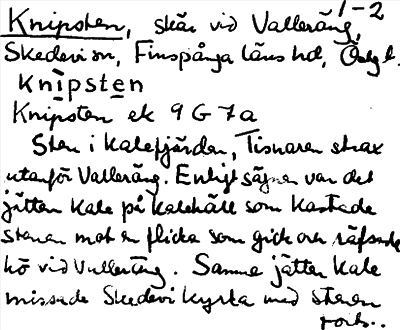 1-2
Knipsten, skär vid Valleräng,
Skedevi sn, Finspånga läns hd, Östg l.
Knipsten
Knipsten ek 9 G 7a
Sten i Kalefjärden, Tisnaren strax
utanför Valleräng. Enligt sägnen var det
jätten Kale på Kalehäll som kastade
stenen mot en flicka som gick och räfsade
hö vid Valleräng. Samma jätten Kale
missade Skedevi kyrka med stenen